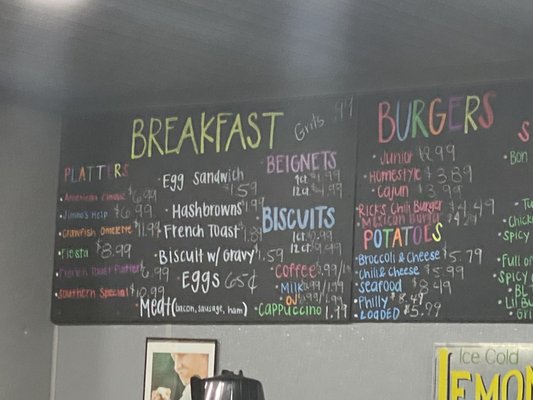 BREAKFAST
PLATTERS
American Classic $6.99
Jimmo's Help $6.99
Crawfish Omelette
Fiesta $8.99
French Toast Platter
Southern Special
Egg Sandwich
$1.59
Hashbrowns
French Toast
Biscuit w/ Gravy $1.59
Eggs 65¢
Meat (bacon, sausage, ham)
BEIGNETS
BISCUITS
Coffee
Milk
OJ
Cappuccino 1.99
BURGERS
Junior
Homestyle $3.89
Cajun $3.99
Rick's Chili Burger $4.49
Mexican Burger $4.29
POTATOES
Broccoli & Cheese $5.79
Chili & Cheese $5.99
Seafood $8.49
Philly
Loaded $5.99
Bon
Chick
Spicy
Full or
Spicy
BL
Lil Bu
Gri
Ice Cold
LEMON